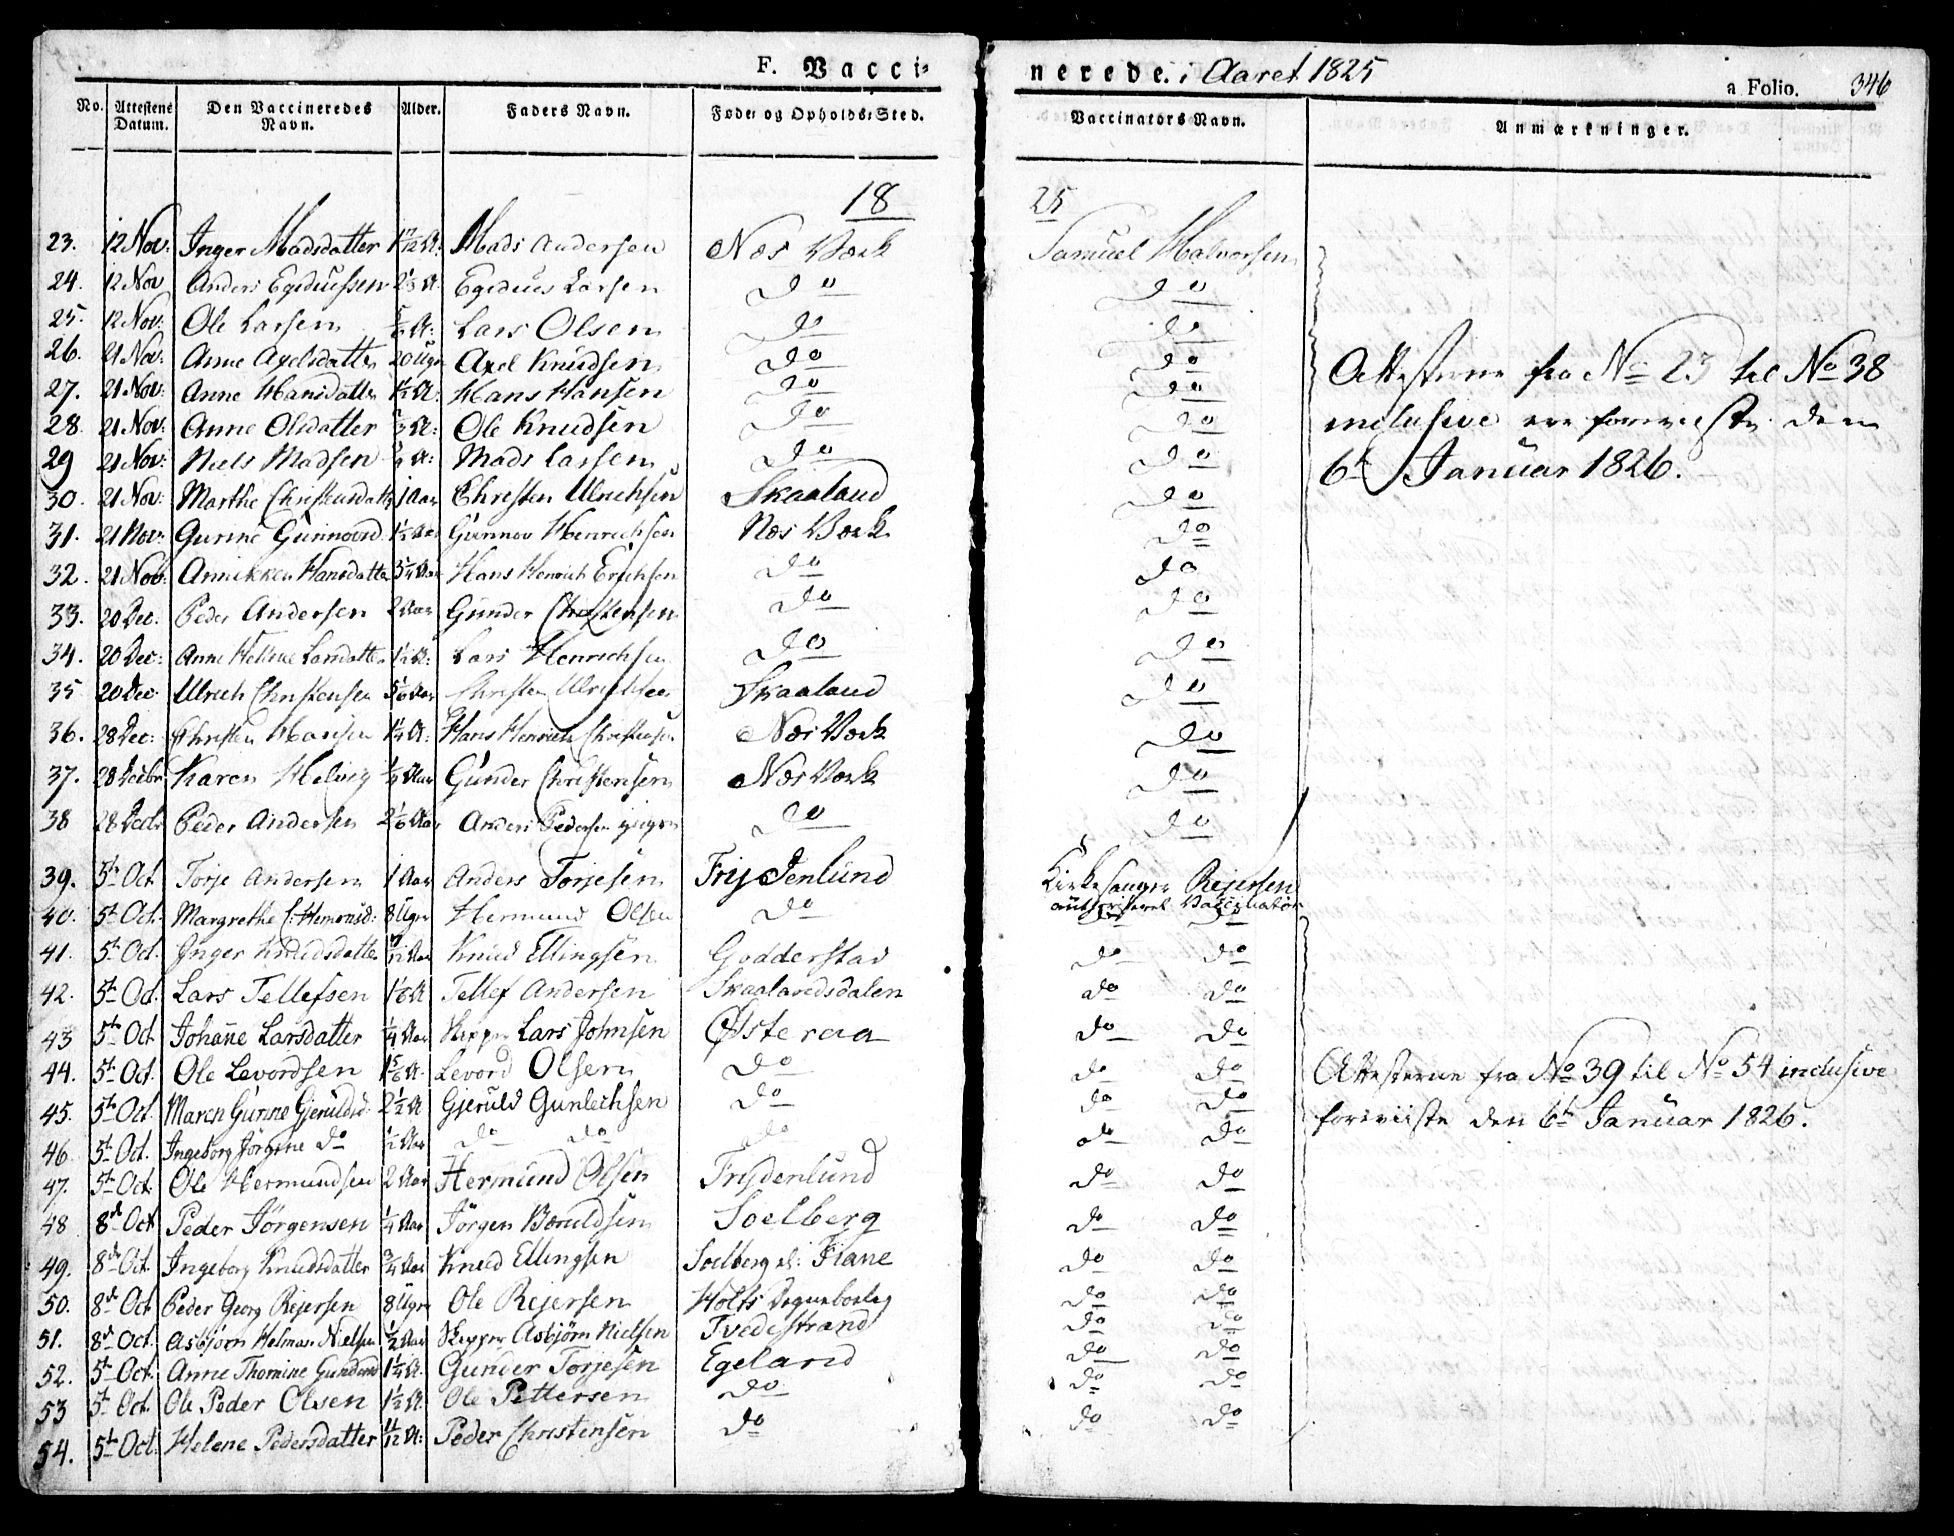 F. Vacci=
nerede. i Aaret 1825
a Folio. 346
No. Attestens Datum. Den Vaccineredes Navn. Alder. Faders Navn. Føde= og Opholds=Sted. Vaccinators Navn. Anmærkninger.
18 25
23. 12 Nov: Inger Madsdatter Mads Andersen Nes Værk Samuel Halvorsen
24. 12 Nov Anders Egedeussen A. Egedeus Larsen do do
25. 12 Nov: Ole Larsen A: Lars Olsen do do
26. 21 Nov: Anne Axelsdatter 20 Uger Axel Knudsen do do
27. 21 Nov: Anne Hansdatter A: Hans Hansen do do
28. 21 Nov: Anne Olsdatter A: Ole Knudsen do do
29 21 Nov: Niels Madsen A: Mads Larsen do do
30. 21 Nov: Marthe Christensdatter 1 Aar Christen Ulrichsen Skaaland do
31. 21 Nov: Gurine Gunnorsd. 1½ Aar Gunnov Henrichsen Nes Værk do
32. 21 Nov: Annikken Hansdatter 3¼ Aar Hans Henrich Erichsen do do
33. 20 Dec: Peder Andersen 2 Aar Gunder Christensen do do
34. 20 Dec: Anne Helene Larsdatter A: Lars Henrichsen do do
35 20 Dec Ulrich Christensen Aar Christen Ulrichsen Skaaland do
36. 28 Dec: Christen Hansen 1¼ A: Hans Henrich Christensen Nes Værk do
37. 28 Decbr Karen Helvig Aar Gunder Christensen Nes Værk do
38 28 Decbr Peder Andersen 2 1/6 Aar Anders Pedersen do do
Attesterne fra No 23 til No 38
inclusive ere foreviiste den
6te Januar 1826.
39. 5te Oct Torje Andersen 1 Aar Anders Torjesen Frijdenlund Kirkesanger Rejersen
authoriseret Vaccinatør
40. 5te Oct. Margrethe C. Hermunsd: 8 Uger Hermund Olsen do do do
41. 5te Oct. Inger Knudsdatter Aar Knud Ellingsen Godderstad do do
42. 5te Oct. Lars Tellefsen 1 1/6 A Tellef Andersen Skaalandsdalen do do
43 5te Oct Johanne Larsdatter ¼ Aar Skipper Lars Johnsen Østeraa do do
44. 5te Oct. Ole Levordsen 1 5/6 A. Levord Olsen do do do
45. 5te Oct. Maren Gunne Gjeruldsd: 2½ A Gjeruld Gunlechsen do do do
46 5te Oct. Ingeborg Jørgine do ½ Aar do do do do do
47. 5te Oct. Ole Hermundsen 2 Aar Hermund Olsen Frijdenlund do do
48 8de Oct Peder Jørgensen ¼ Aar Jørgen Bæruldsen Soelberg do do
49. 8de Oct. Ingeborg Knudsdatter ¾ Aar Knud Ellingsen Soelberg el: Fiane do do
50. 8de Oct Peder Georg Rejersen 8 Uger Ole Rejersen Holts Degnebolig do do
51. 8de Oct. Asbjørn Helman Nielsen ½ Aar Skipper Asbjørn Nielsen Tvedestrand do do
52. 5te Oct. Anne Thomine Gundersd 1¼ A. Gunder Torjesen Egeland do do
53 5te Oct. Ole Peder Olsen 1½ A. Ole Pettersen do do do
54. 5te Oct: Helene Pedersdatter 11/12 A: Peder Christensen do do do
Attesterne fra No 39 til No 54 inclusive
foreviiste den 6te Januar 1826.